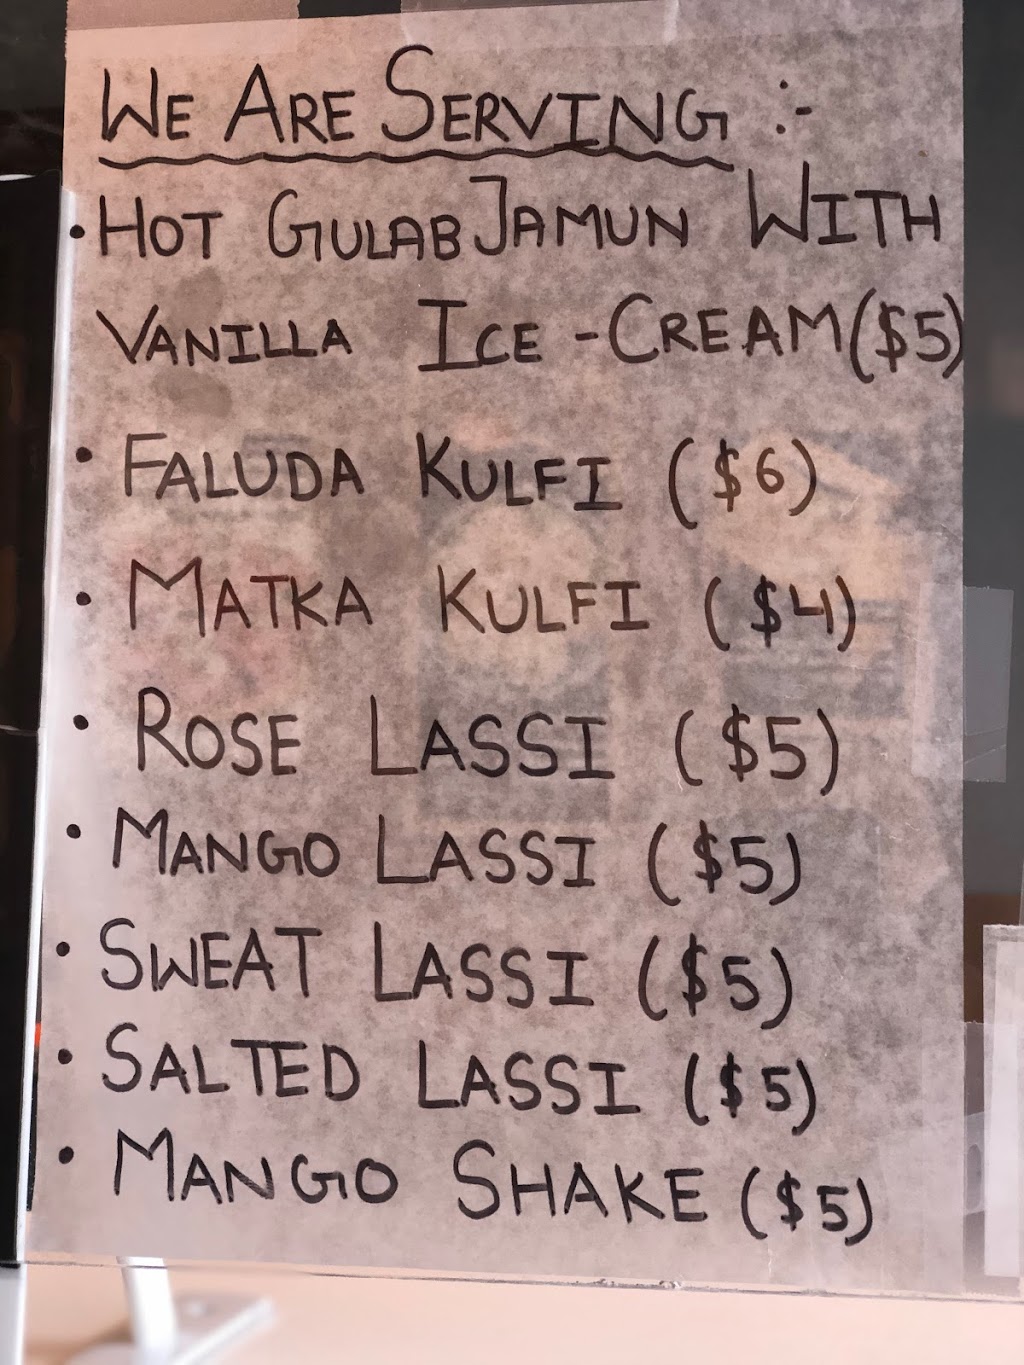 WE ARE SERVING :-
• HOT GULAB JAMUN WITH
VANILLA ICE-CREAM ($5)
• FALUDA KULFI ($6)
• MATKA KULFI ($4)
• ROSE LASSI ($5)
• MANGO LASSI ($5)
• SWEAT LASSI ($5)
• SALTED LASSI ($5)
• MANGO SHAKE ($5)